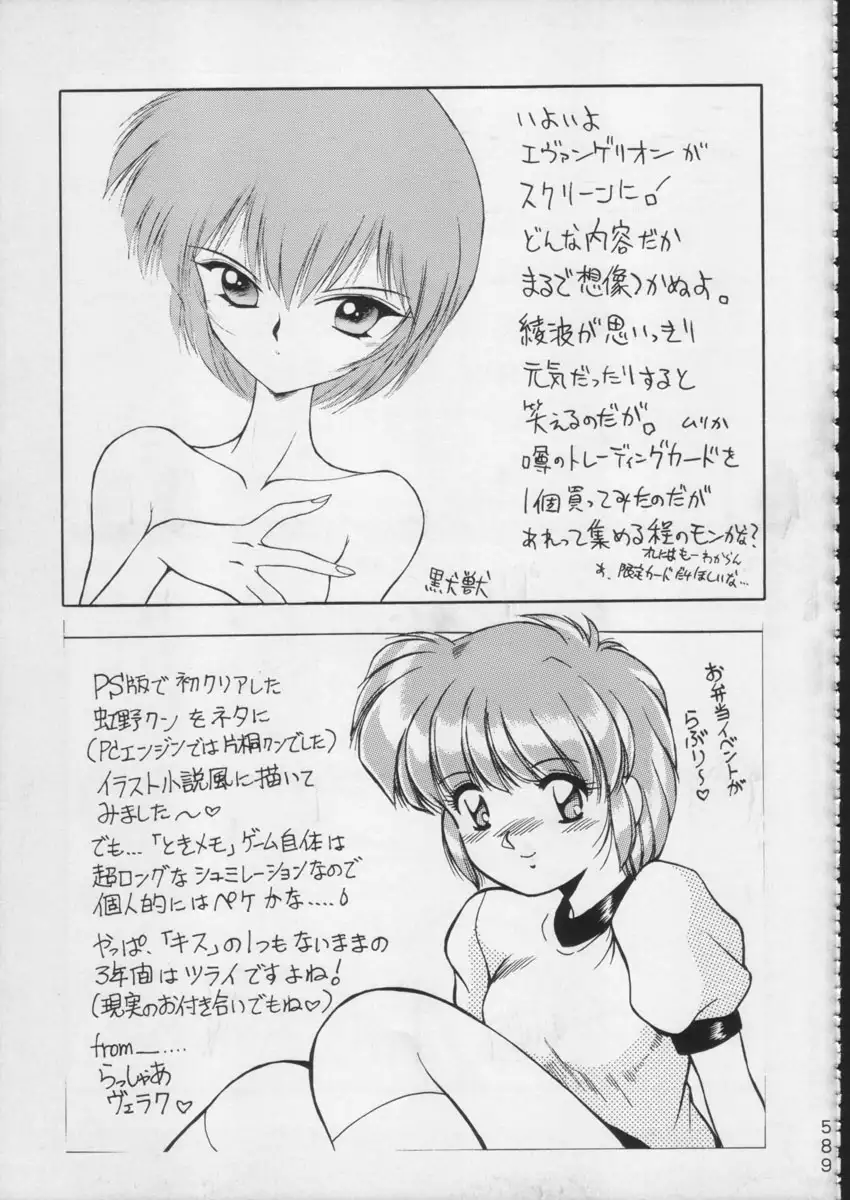 いよいよ
エヴァンゲリオンが
スクリーンに!
どんな内容だか
まるで想像つかぬよ。
綾波が思いっきり
元気だったりすると
笑えるのだが。ムリか
噂のトレーディングカードを
1個買ってみたのだが
あれって集める程のモンかな?
れにはもーわからん
あ、限定カードだけほしいな…
黒犬獣
PS版で初クリアした
虹野クンをネタに
(PCエンジンでは片桐クンでした)
イラスト小説風に描いて
みました〜♡
でも…「ときメモ」ゲーム自体は
超ロングなシュミレーションなので
個人的にはペケかな……!
やっぱ、「キス」の1つもないままの
3年間はツライですよね!
(現実のお付き合いでもね♡)
from—‥‥
らっしゃあ
ヴェラク♡
お弁当イベントが
らぶり〜♡
589